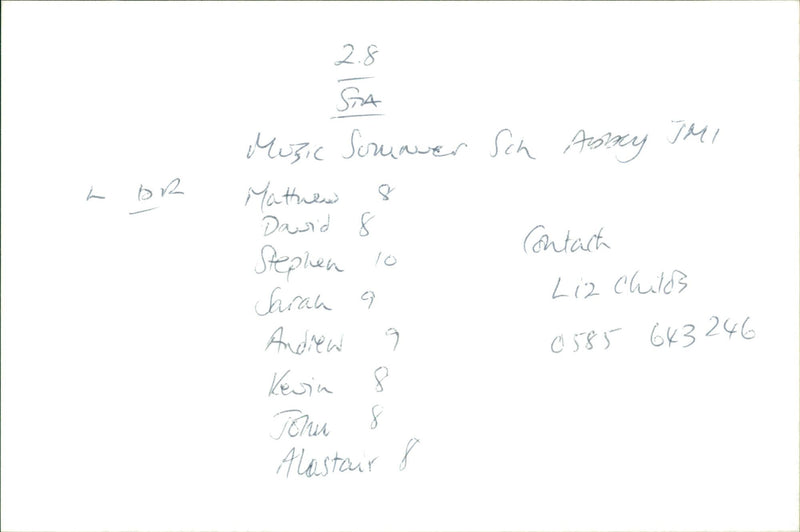 2.8
STA
Music Summer Sch Abbey JMI
L DR Matthew 8
David 8
Stephen 10
Sarah 9
Andrew 9
Kevin 8
John 8
Alastair 8
Contact
Liz Childs
0585 643 246